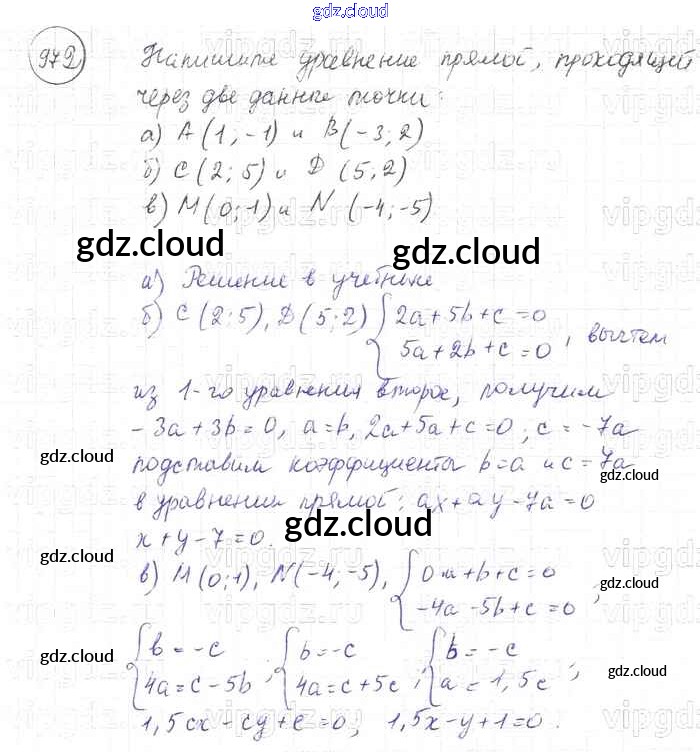 gdz.cloud
972 Напишите уравнение прямой, проходящей
через две данные точки:
а) A(1; -1) и B(-3; 2)
б) C(2; 5) и D (5; 2)
в) M(0; 1) и N (-4; -5)
gdz.cloud gdz.cloud
а) Решение в учебнике
б) C(2; 5), D(5; 2) { 2a + 5b + c = 0
5a + 2b + c = 0 , вычтем
из 1-го уравнения второе, получим
- 3a + 3b = 0, a = b, 2a + 5a + c = 0; c = -7a
gdz.cloud подставим коэффициенты b = a и c = 7a gdz.cloud
в уравнении прямой: ax + ay - 7a = 0
gdz.cloud
x + y - 7 = 0.
gdz.cloud gdz.cloud
в) M(0; 1), N(-4; -5), { 0·a + b + c = 0
-4a - 5b + c = 0 ,
{ b = -c ; { b = -c ; { b = -c ;
4a = c - 5b 4a = c + 5c a = 1,5c
gdz.cloud gdz.cloud
1,5cx - cy + c = 0; 1,5x - y + 1 = 0.